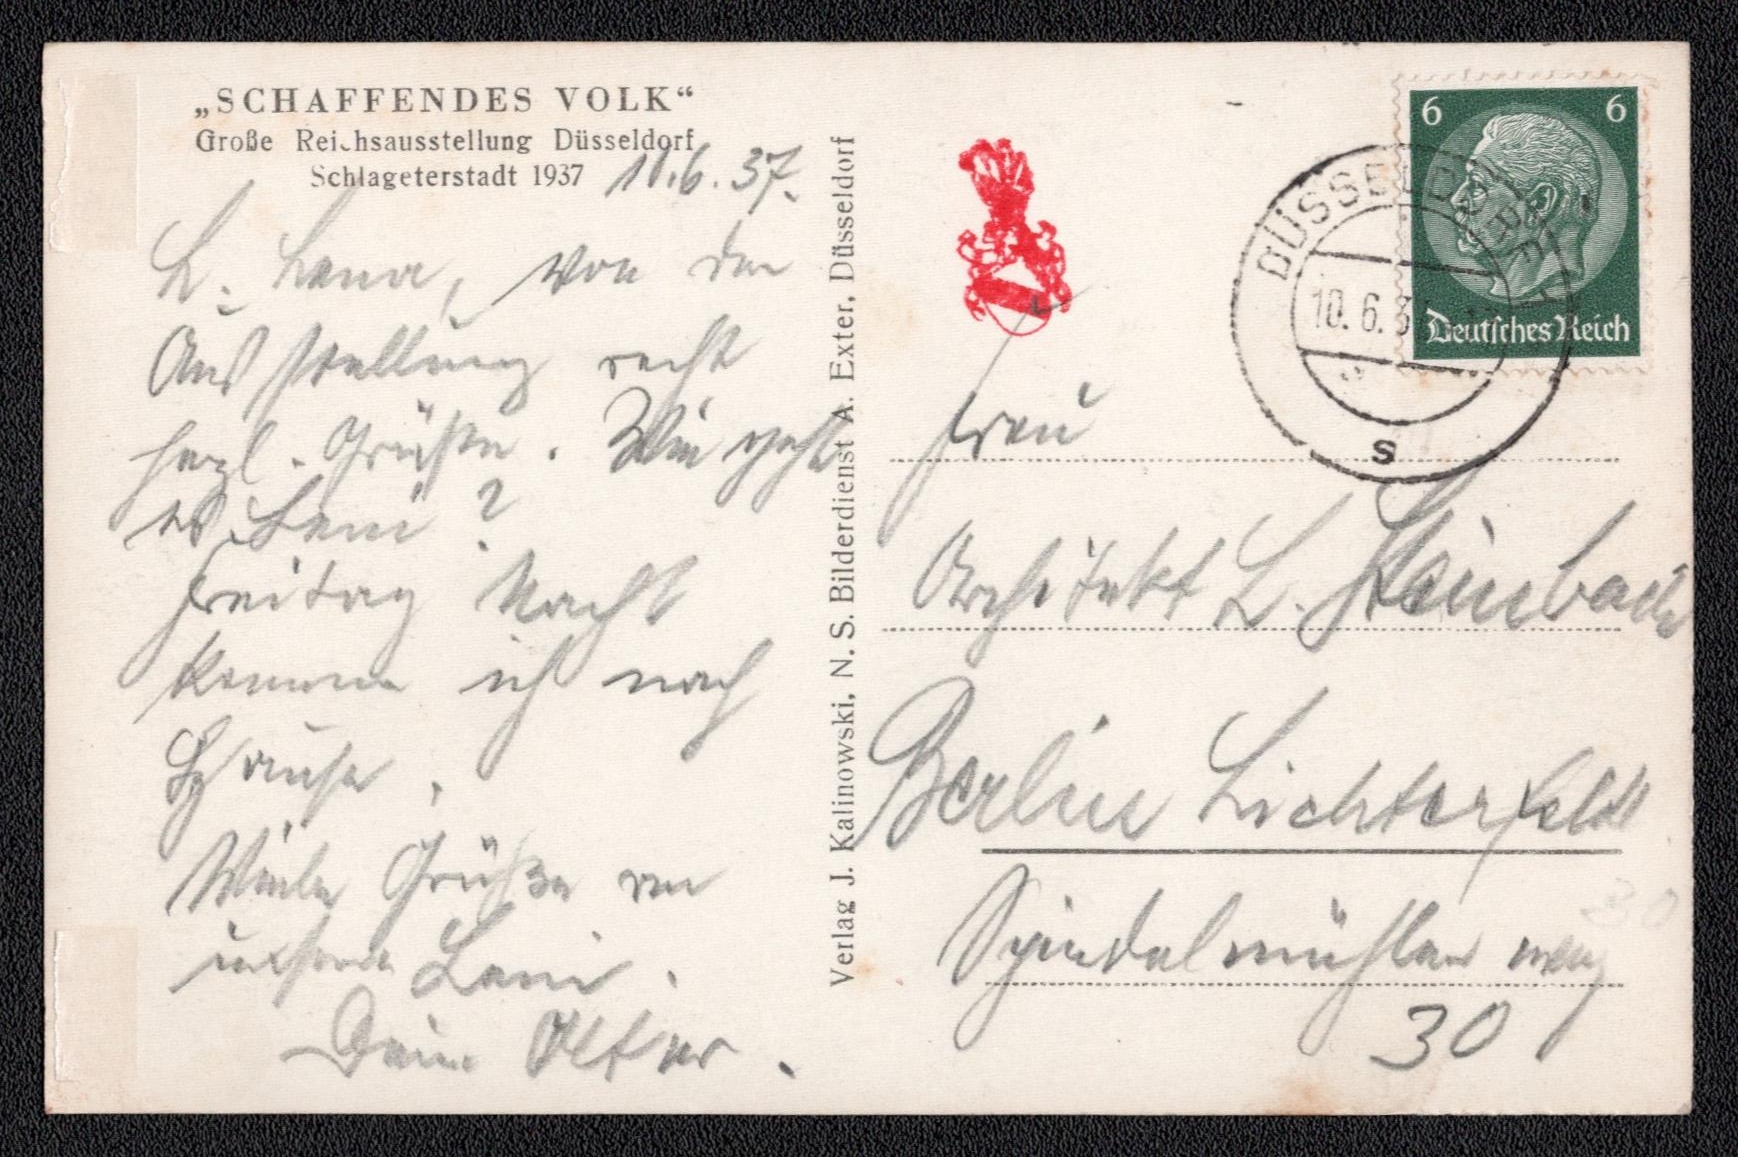 „SCHAFFENDES VOLK“
Große Reichsausstellung Düsseldorf
Schlageterstadt 1937
10.6.37.
L. Lena, von der
Ausstellung recht
herzl. Grüße. Wie geht
es Leni?
Freitag Nacht
komme ich nach
Hause.
Viele Grüße an
unsere Leni.
Dein Alter.
Verlag J. Kalinowski, N. S. Bilderdienst A. Exter, Düsseldorf
6 6
Deutsches Reich
DÜSSELDORF
10.6.3
s
Frau
Architekt L. Steinbach
Berlin Lichterfelde
Spindelmühler weg
30
30